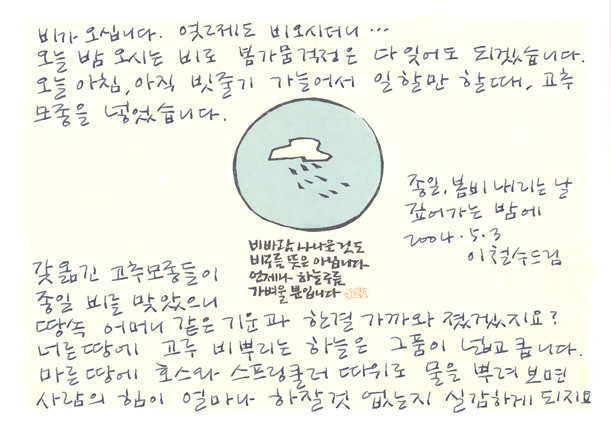 비가 오십니다. 엊그제도 비오시더니 …
오늘 밤 오시는 비로 봄가뭄걱정은 다 잊어도 되겠습니다.
오늘 아침, 아직 빗줄기 가늘어서 일할만 할 때, 고추
모종을 넣었습니다.
종일, 봄비 내리는 날
깊어가는 밤에
2004.5.3
이철수드림
비바람 사나운 것도
비구름 뜻은 아닙니다
언제나 하늘구름
가벼울 뿐입니다
갓 옮긴 고추모종들이
종일 비를 맞았으니
땅속 어머니 같은 기운과 한결 가까와 졌겠지요?
너른 땅에 고루 비뿌리는 하늘은 그품이 넓고 큽니다.
마른 땅에 호스와 스프링쿨러 따위로 물을 뿌려 보면
사람의 힘이 얼마나 하찮것 없는지 실감하게 되지요